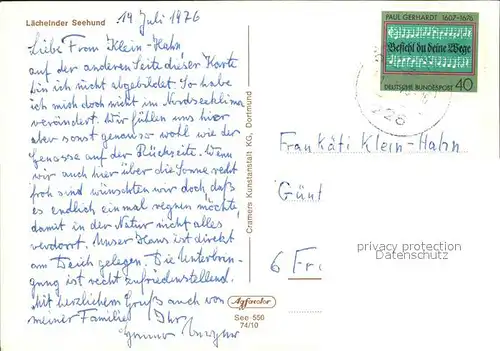 Lächelnder Seehund
19 Juli 1976
Liebe Frau Klein-Hahn
auf der anderen Seite dieser Karte
bin ich nicht abgebildet. So habe
ich mich doch nicht im Nordseeklima
verändert. Wir fühlen uns hier
aber sonst genauso wohl wie der
Genosse auf der Rückseite. Wenn
wir auch hier über die Sonne recht
froh sind wünschten wir doch, daß
es endlich einmal regnen möchte,
damit in der Natur nicht alles
verdorrt. Unser Haus ist direkt
am Deich gelegen. Die Unterbrin-
gung ist recht zufriedenstellend.
Mit herzlichem Gruß auch von
meiner Familie Ihr
Cramers Kunstanstalt KG, Dortmund
Agfacolor
See 550
74/10
PAUL GERHARDT 1607-1676
Befiehl du deine Wege
DEUTSCHE BUNDESPOST 40
Frau Käti Klein-Hahn
Günt
6 Fr
privacy protection
Datenschutz